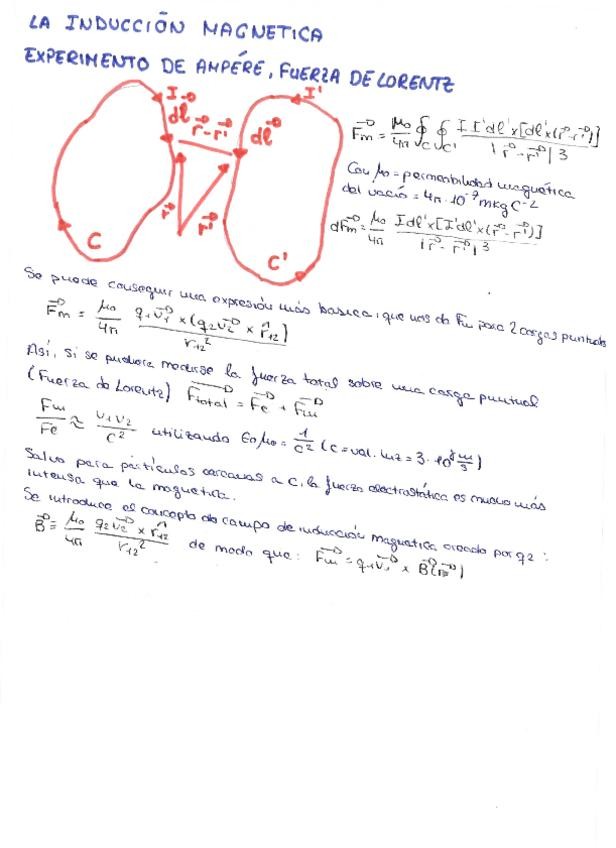 LA INDUCCIÓN MAGNETICA
EXPERIMENTO DE AMPÉRE, FUERZA DE LORENTZ
I
I'
dl⃗
r⃗-r⃗'
dl⃗'
r⃗
r⃗'
C
C'
F⃗m = μ0/4π ∮C ∮C' I I' dl' x [dl' x (r⃗-r⃗')] / |r⃗-r⃗'|3
Con μ0 = permeabilidad magnética
del vacío = 4π·10-7 m kg C-2
dFm = μ0/4π I dl' x [I' dl' x (r⃗-r⃗')] / |r⃗-r⃗'|3
Se puede conseguir una expresión más basica, que nos da Fm para 2 cargas puntuales
F⃗m = μ0/4π q1 v⃗1 x (q2 v⃗2 x r̂12) / r12²
Así, si se pudiera medirse la fuerza total sobre una carga puntual
(Fuerza de Lorentz) F⃗total = F⃗e + F⃗m
Fm/Fe ≈ v1 v2/c² utilizando ε0 μ0 = 1/c² (c = vel. luz = 3·10⁸ m/s)
Salvo para partículas cercanas a c, la fuerza electrostática es mucho más
intensa que la magnetica.
Se introduce el concepto de campo de inducción magnetica creado por q2:
B⃗ = μ0/4π q2 v⃗2 x r̂12 / r12² de modo que: F⃗m = q1 v⃗1 x B⃗(r⃗)